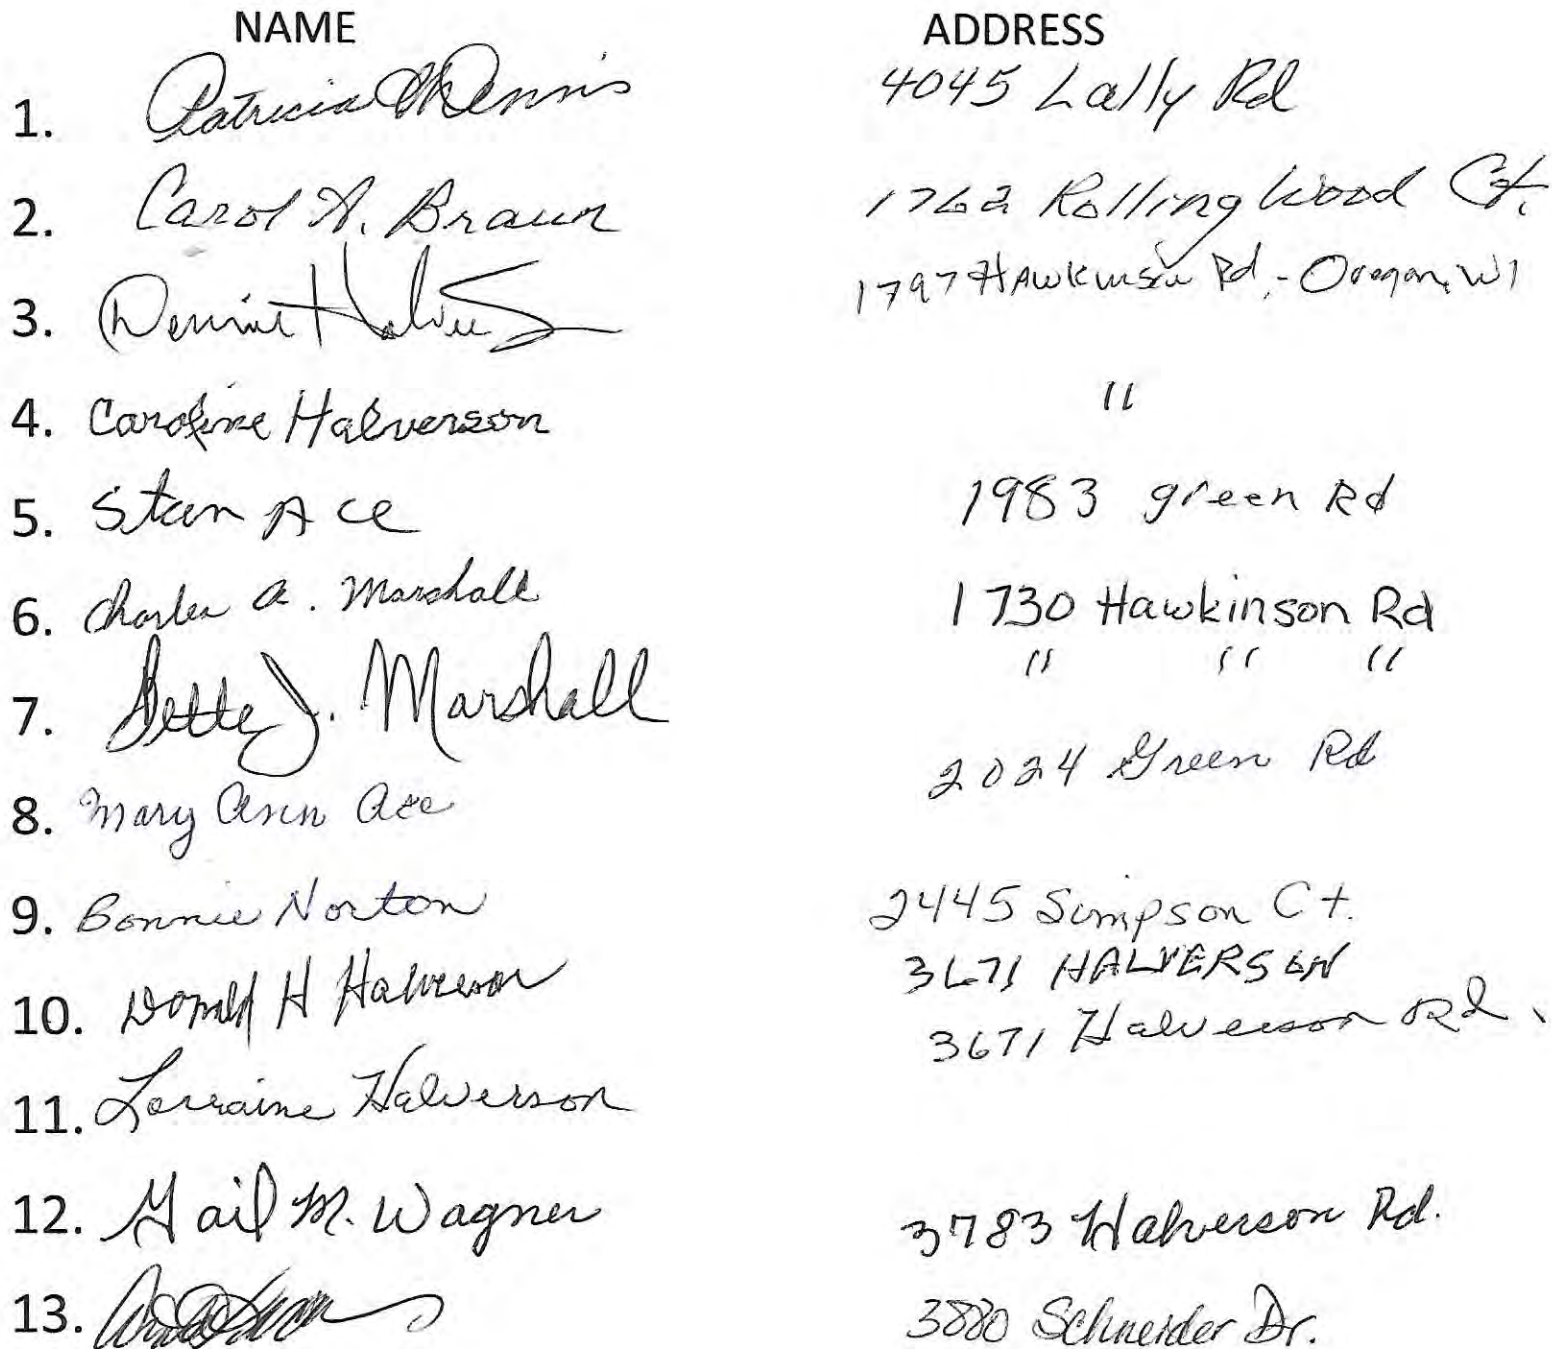 NAME ADDRESS
1. Patricia Dennis 4045 Lally Rd
2. Carol A. Braun 1762 Rolling Wood Ct.
3. 1797 Hawkinson Rd, - Oregon, WI
4. Caroline Halverson "
5. Stan Ace 1983 green Rd
6. Charles A. Marshall 1730 Hawkinson Rd
7. Bette J. Marshall " " "
8. Mary Ann Ace 2024 Green Rd
9. Bonnie Norton 2445 Simpson Ct.
10. Donald H Halverson 3671 HALVERSON
11. Lorraine Halverson 3671 Halverson Rd.
12. Gail M. Wagner 3783 Halverson Rd.
13. 3880 Schneider Dr.